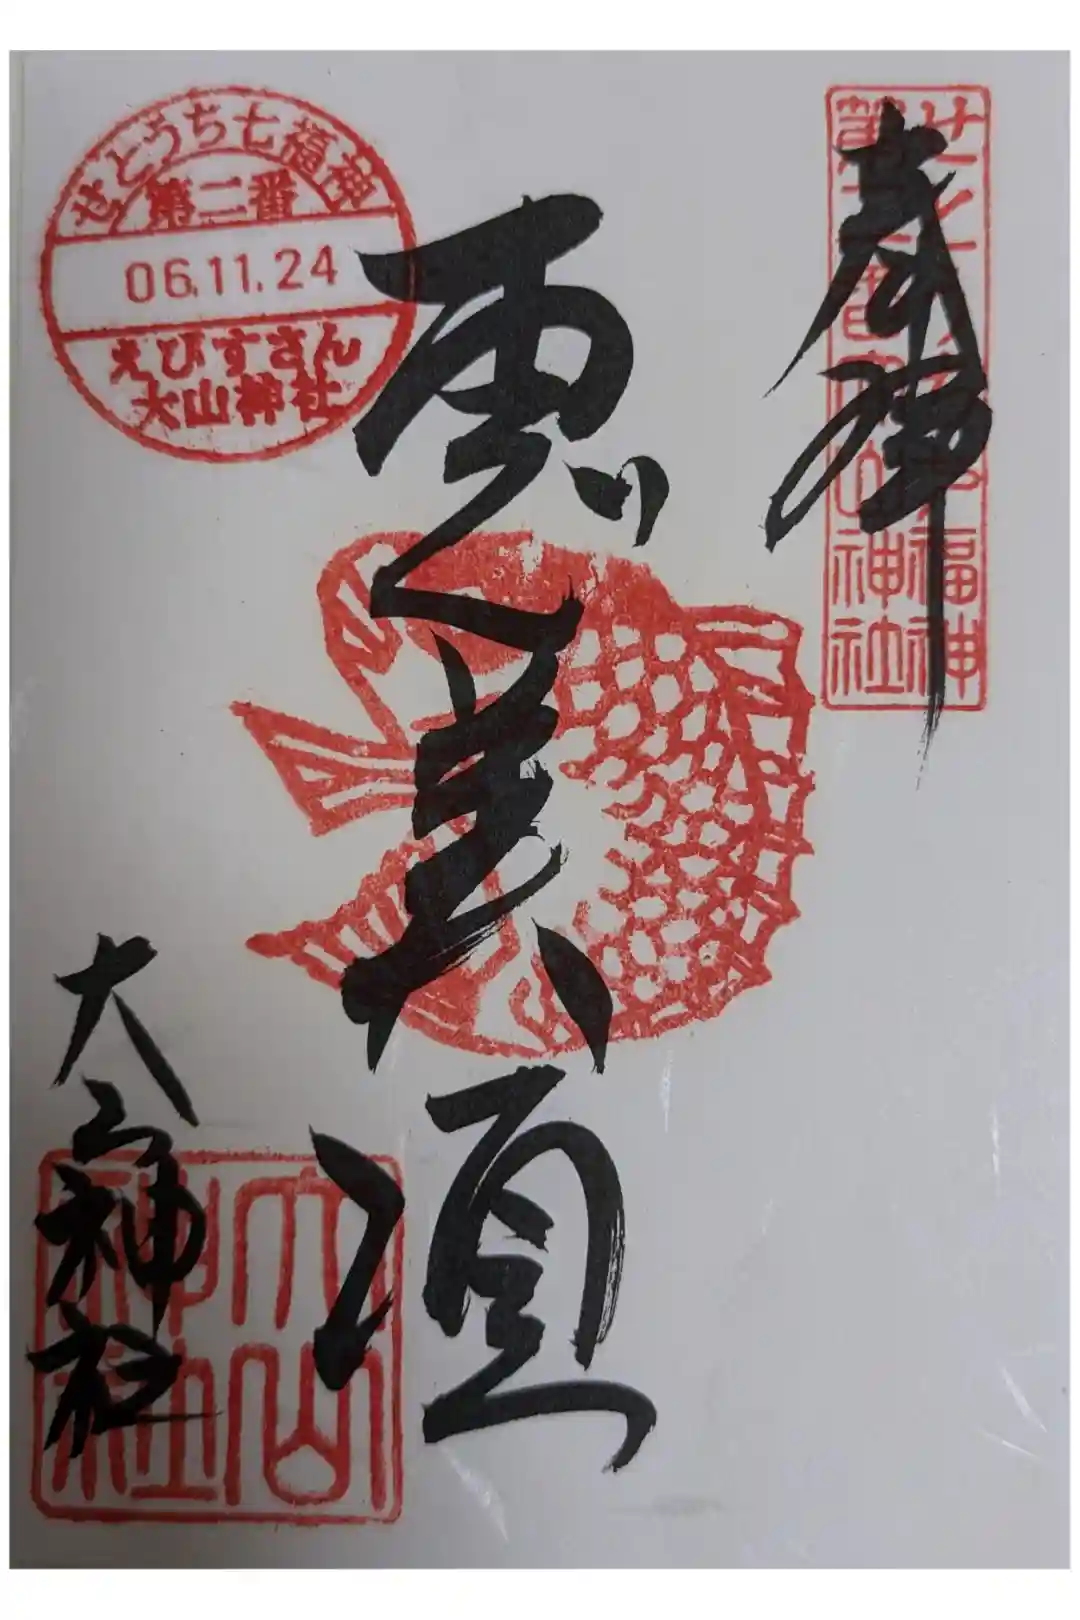 奉拝
せとうち七福神
第二番大山神社
恵美須
せとうち七福神
第二番
06.11.24
えびすさん
大山神社
大山神社
大山
神社